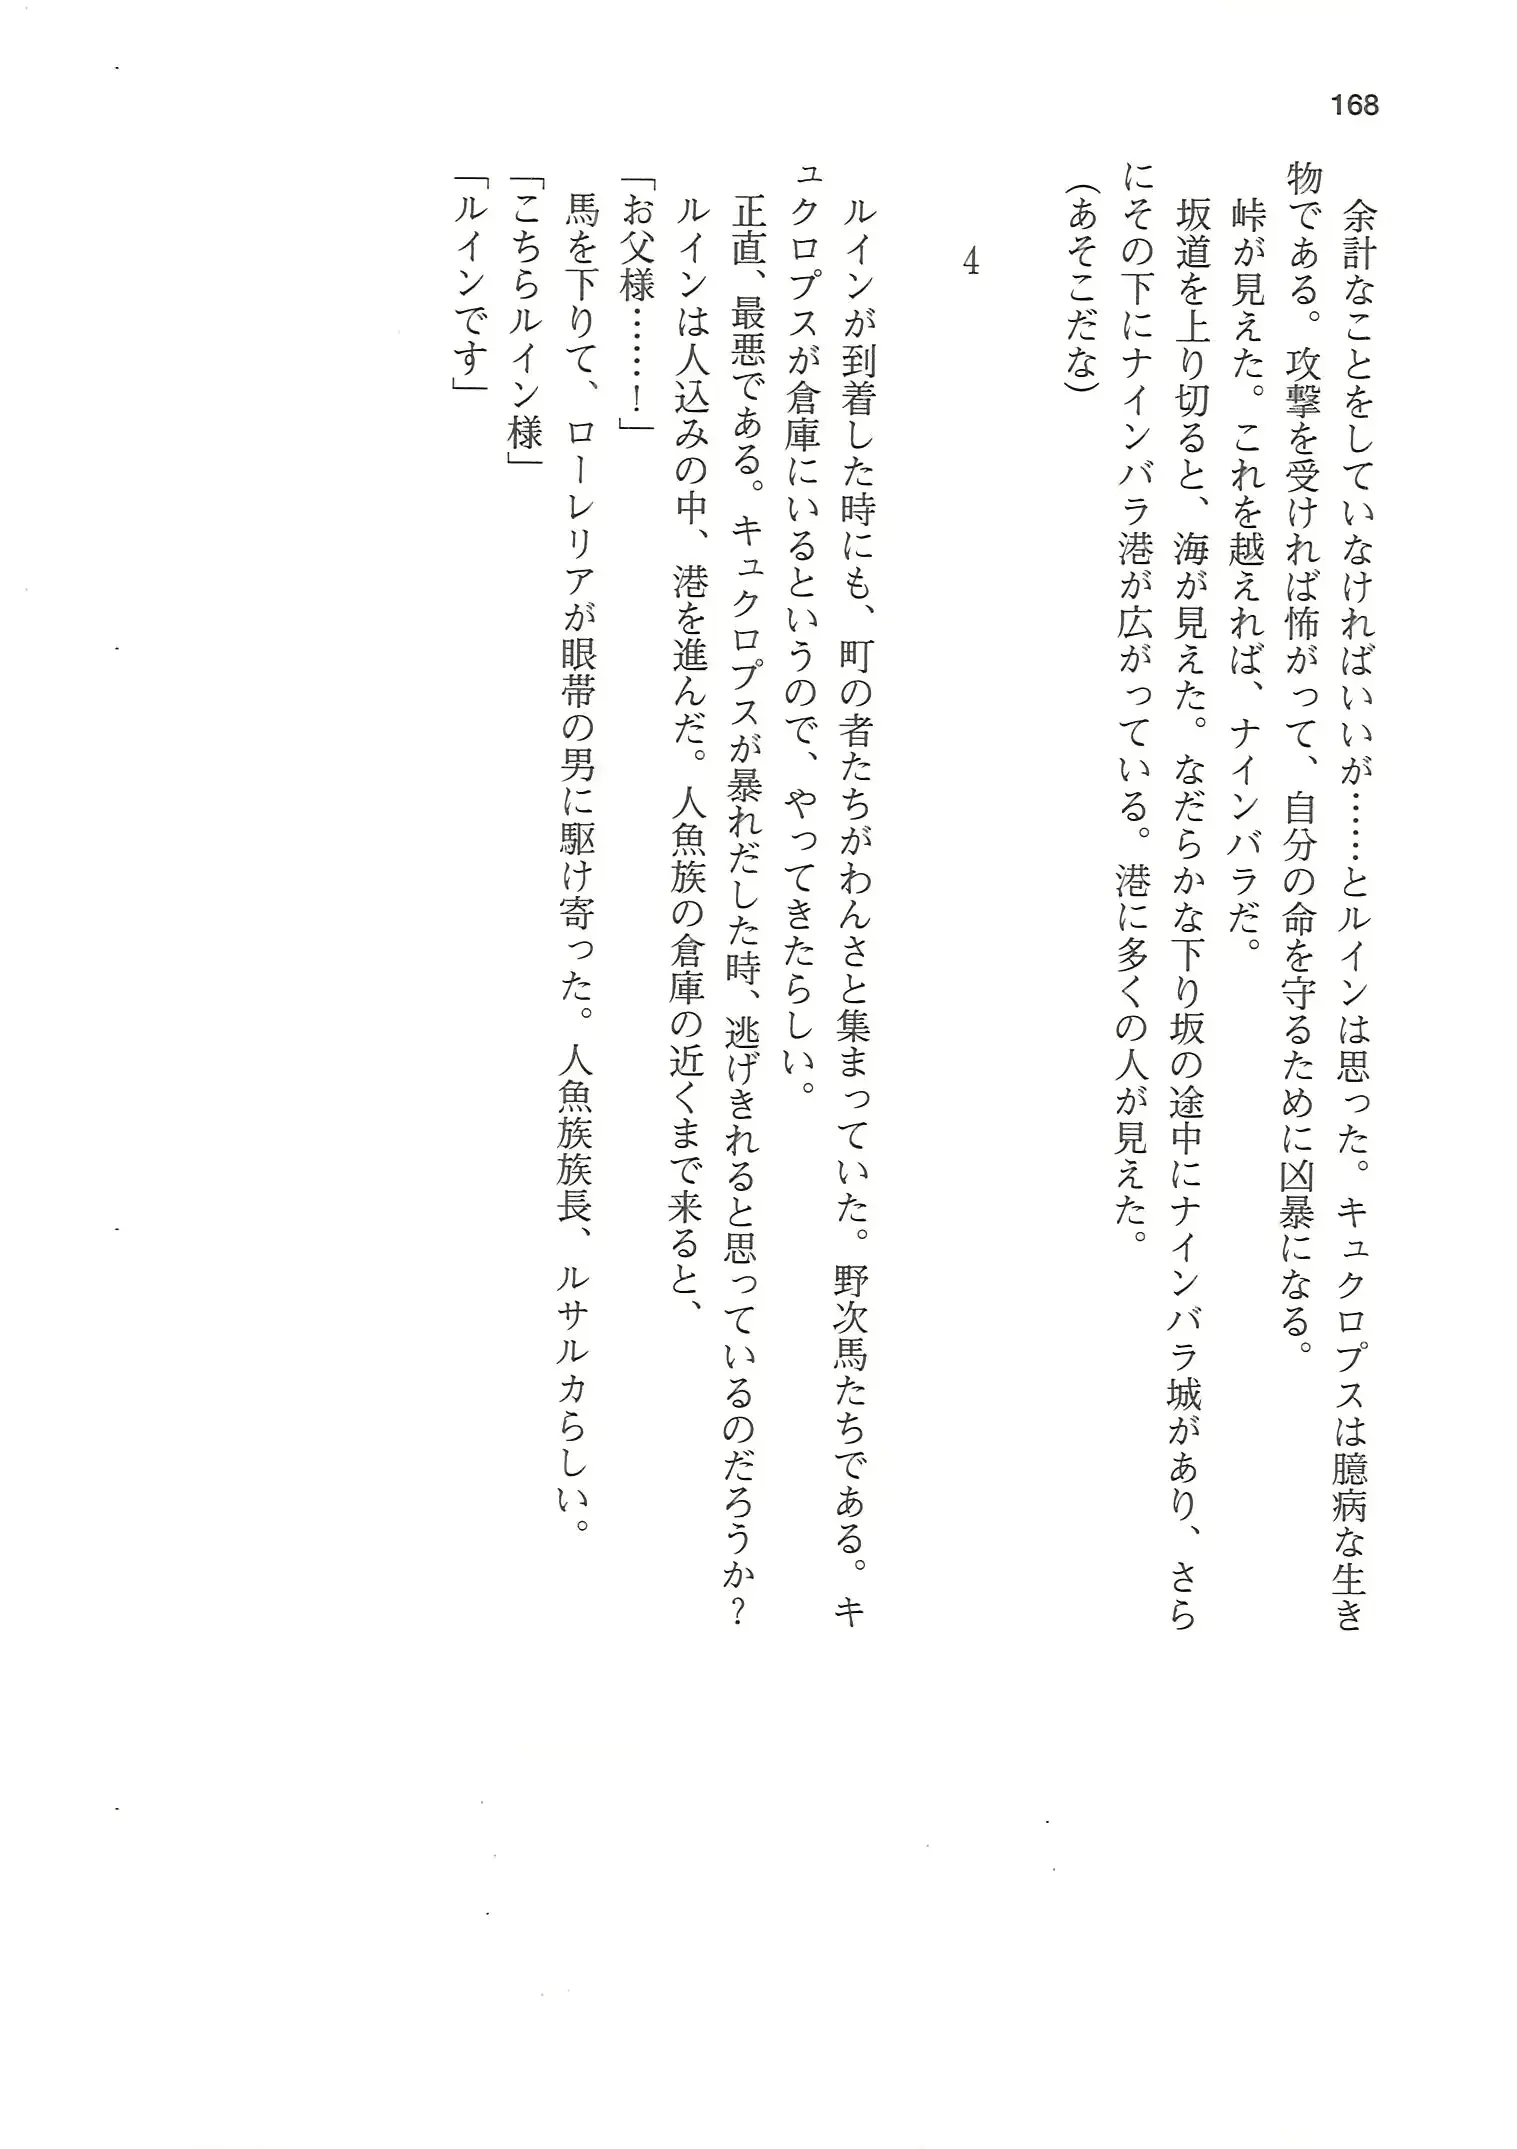 168
余計なことをしていなければいいが……とルインは思った。キュクロプスは臆病な生き
物である。攻撃を受ければ怖がって、自分の命を守るために凶暴になる。
峠が見えた。これを越えれば、ナインバラだ。
坂道を上り切ると、海が見えた。なだらかな下り坂の途中にナインバラ城があり、さら
にその下にナインバラ港が広がっている。港に多くの人が見えた。
(あそこだな)
4
ルインが到着した時にも、町の者たちがわんさと集まっていた。野次馬たちである。キ
ュクロプスが倉庫にいるというので、やってきたらしい。
正直、最悪である。キュクロプスが暴れだした時、逃げきれると思っているのだろうか?
ルインは人込みの中、港を進んだ。人魚族の倉庫の近くまで来ると、
「お父様……!」
馬を下りて、ローレリアが眼帯の男に駆け寄った。人魚族族長、ルサルカらしい。
「こちらルイン様」
「ルインです」